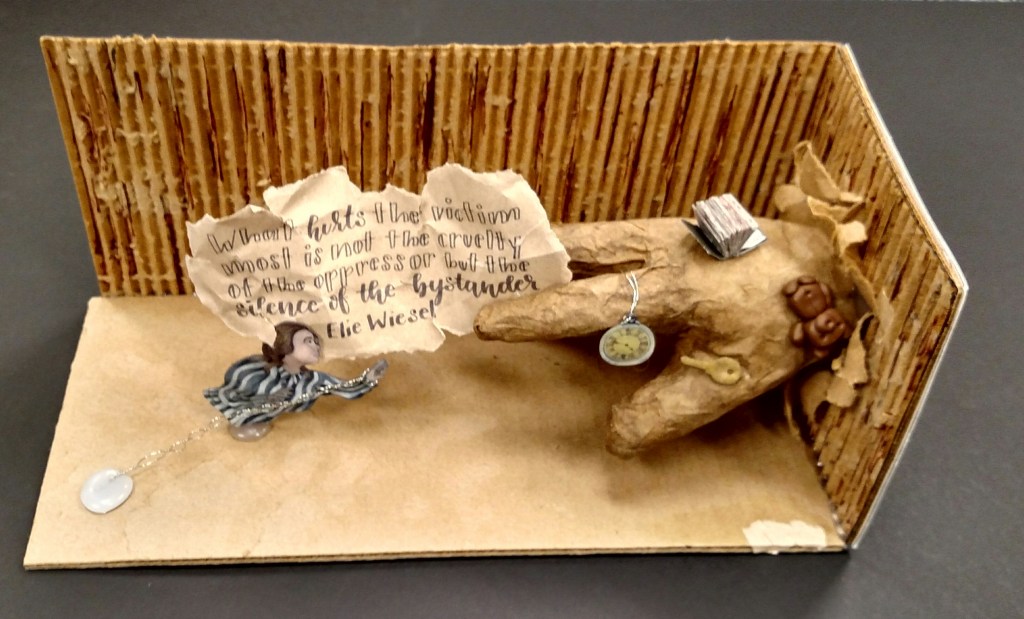 What hurts the victim
most is not the cruelty
of the oppressor but the
silence of the bystander
Elie Wiesel